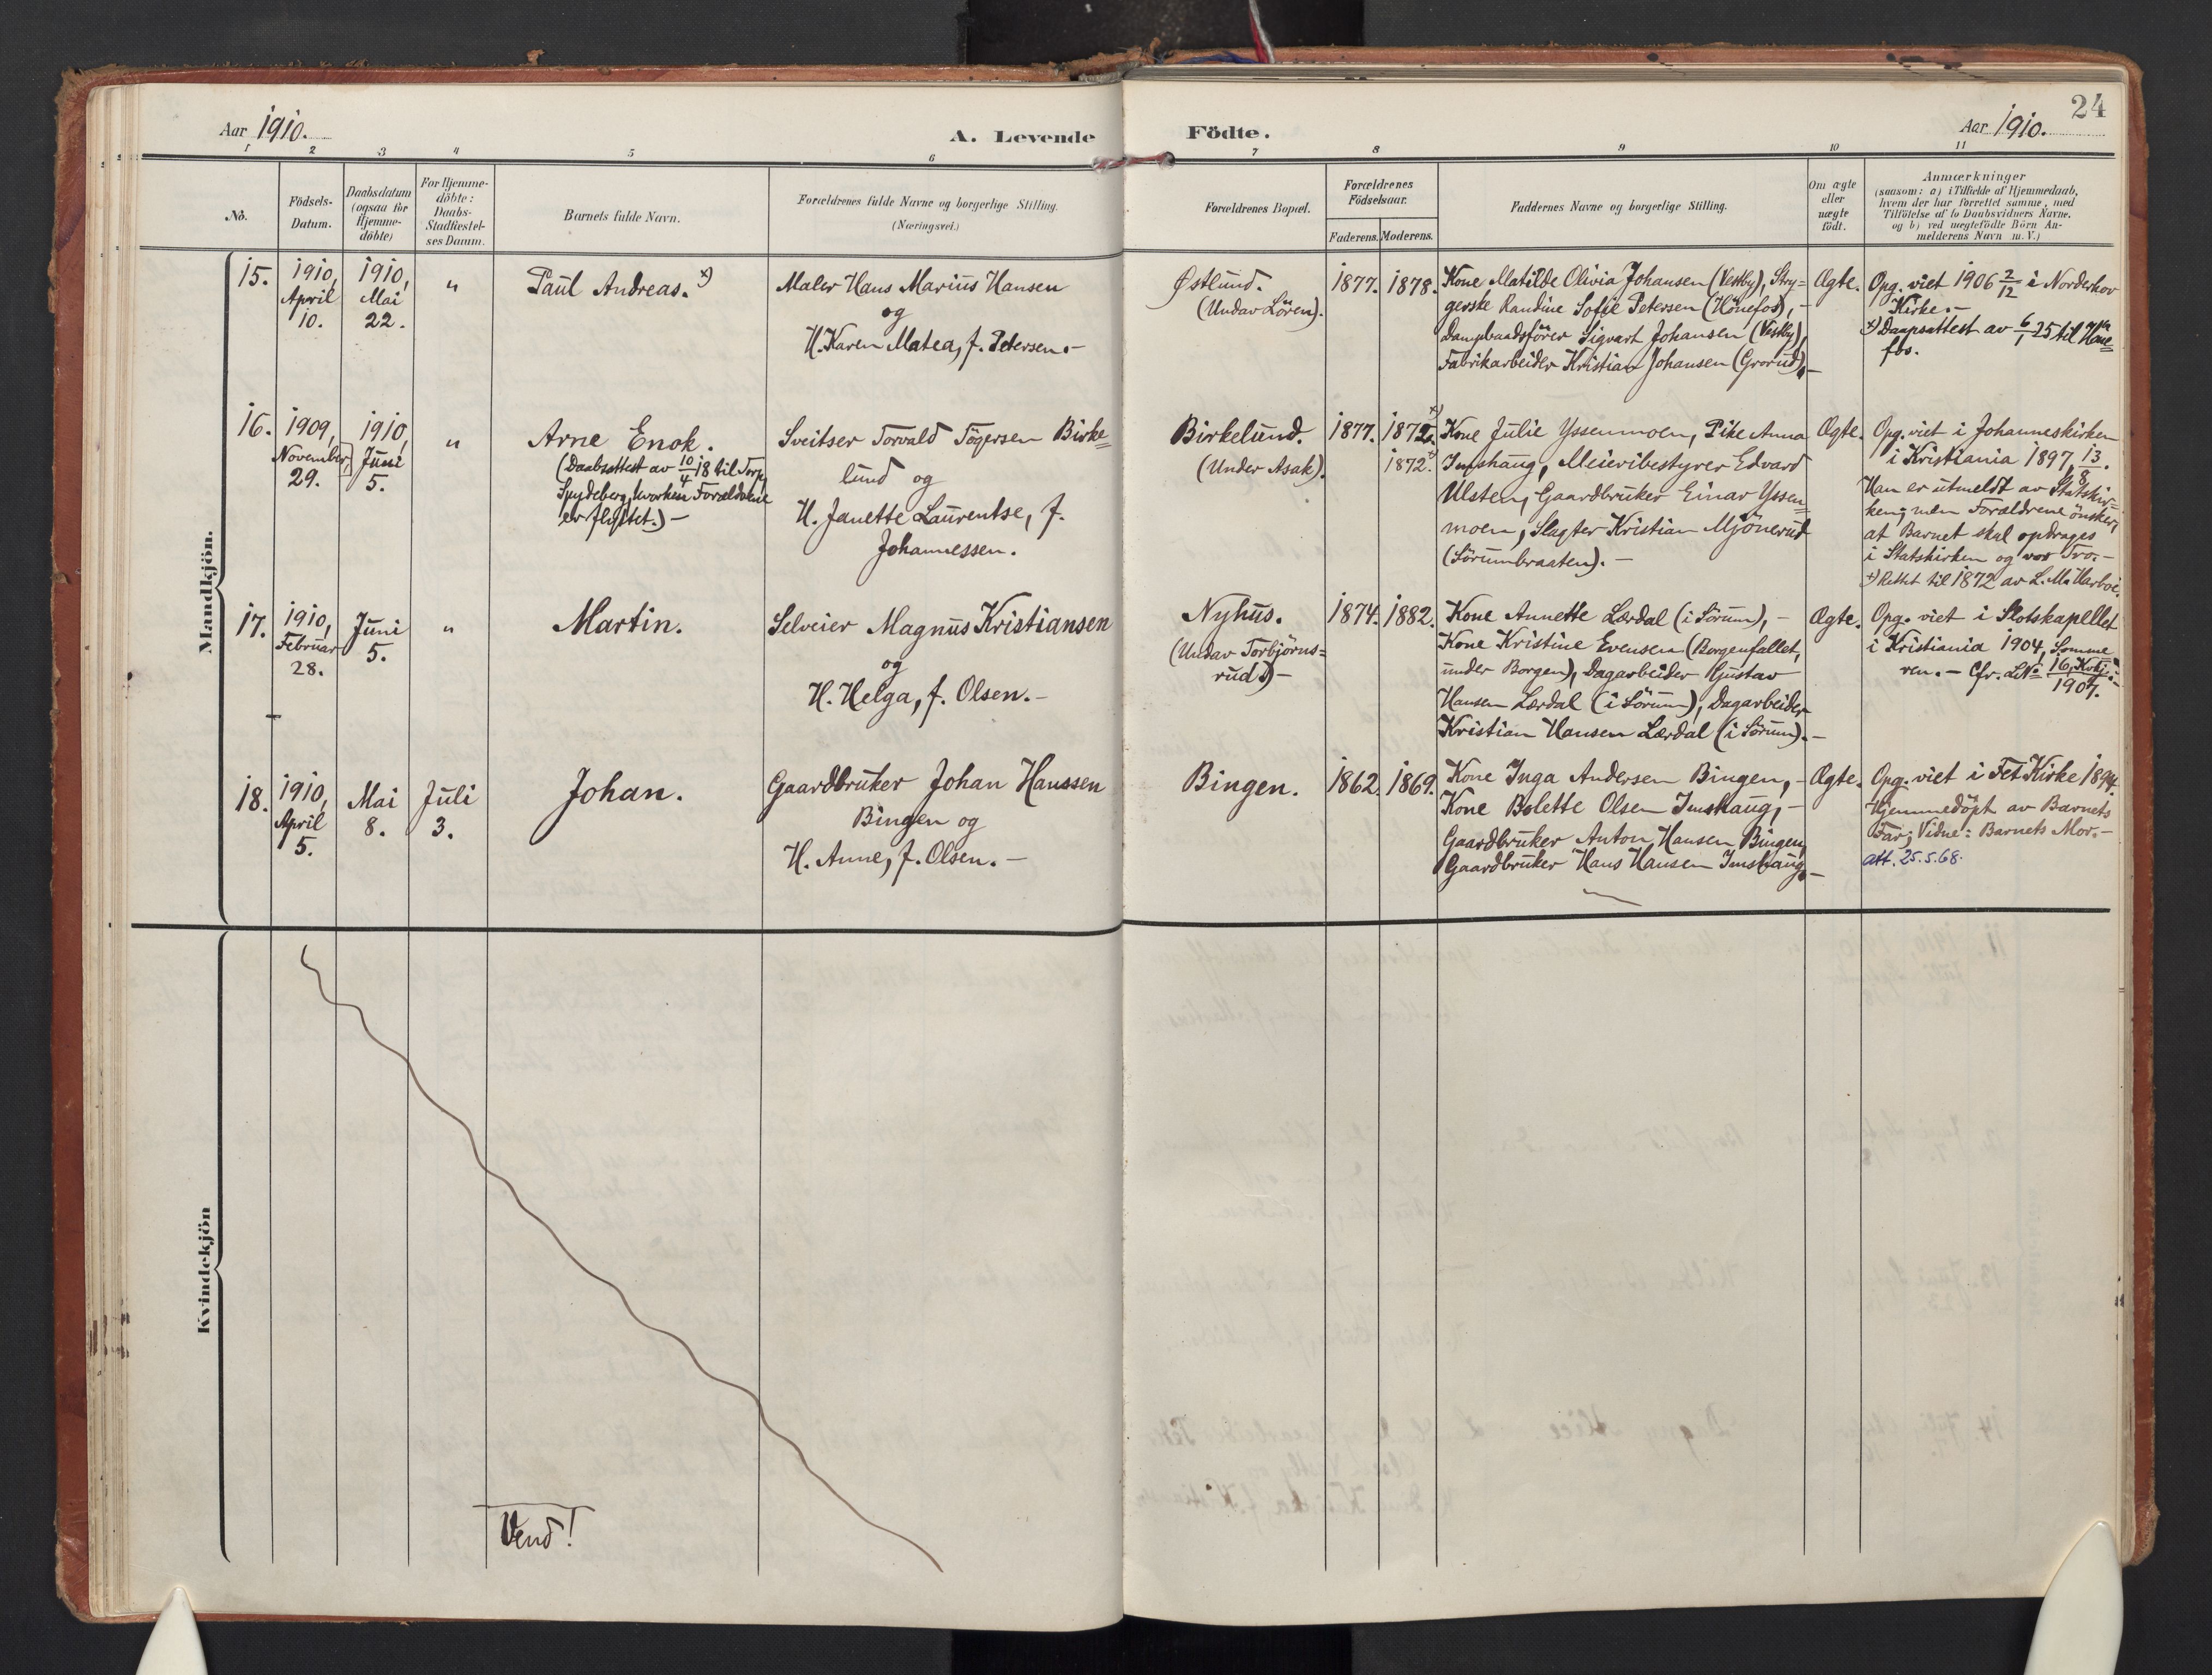 Aar 1910.
A. Levende Födte.
Aar 1910.
24
1 2 3 4 5 6 7 8 9 10 11
No.
Födsels-
Datum.
Daabsdatum
(ogsaa for
Hjemme-
döbte)
For Hjemme-
döbte:
Daabs-
Stadfæstel-
ses Datum.
Barnets fulde Navn.
Forældrenes fulde Navne og borgerlige Stilling.
(Næringsvei.)
Forældrenes Bopæl.
Forældrenes
Födselsaar.
Faderens. Moderens.
Faddernes Navne og borgerlige Stilling.
Om ægte
eller
uægte
født.
Anmærkninger
(saasom: a) i Tilfælde af Hjemmedaab,
hvem der har forrettet samme, med
Tilföielse af to Daabsvidners Navne,
og b) ved uægtefödte Börn An-
melderens Navn m. V.)
Mandkjön.
15.
1910,
April
10.
1910,
Mai
22.
"
Paul Andreas. x)
Maler Hans Marius Hansen
og
H. Karen Matea, f. Petersen.-
Østlund.
(Under Lören).
1877.
1878.
Kone Matilde Olivia Johansen (Vestby), Stry=
gerske Randine Sofie Petersen (Hönefos), -
Dampbaadsförer Sigvart Johansen (Vestby),
Fabrikarbeider Kristian Johansen (Grorud).-
Ægte.
Opg. viet 1906 2/12 i Norderhov
Kirke.-
x) Daapsattest av 6/1 25 til Høne=
fos.
16.
1909,
November,
29.
1910,
Juni
5.
"
Arne Enok.
(Daabsattest av 10/4 18 til Sogn
Spydeberg, hvorhen Forældrene
er flyttet.) -
Sveitser Torvald Tögersen Birke=
lund og
H. Janette Laurentse, f.
Johannessen.
Birkelund.
(Under Asak).
1877.
1872. x)
1872. x)
Kone Julie Yssenmoen, Pike Anna
Imshaug, Meieribestyrer Edvard
Ulsten, Gaardbruker Einar Yssen=
moen, Slagter Kristian Mjönerud
(Sörumbraaten). -
Ægte.
Opg. viet i Johanneskirken
i Kristiania 1897, 13/8.
Han er utmeldt av Statskir=
ken; men Forældrene önsker,
at Barnet skal opdrages
i Statskirken og vor Tro.-
x) Rettet til 1872 av L. M. Harboe.
17.
1910,
Februar
28.
Juni
5.
"
Martin.
Selveier Magnus Kristiansen
og
H. Helga, f. Olsen.-
Nyhus.
(Under Torbjörns=
rud) -
1874.
1882.
Kone Annette Lærdal (i Sörum), -
Kone Kristine Evensen (Borgenfallet,
under Borgen), Dagarbeider Gustav
Hansen Lærdal (i Sörum), Dagarbeider
Kristian Hansen Lærdal (i Sörum).-
Ægte.
Opg. viet i Slotskapellet
i Kristiania 1904, Somme=
ren. - Cfr. LNo 16, Kvkj.
1907.-
18.
1910,
April
5.
Mai
8.
Juli
3.
Johan.
Gaardbruker Johan Hanssen
Bingen og
H. Anne, f. Olsen.-
Bingen.
1862.
1869.
Kone Inga Andersen Bingen, -
Kone Bolette Olsen Imshaug, -
Gaardbruker Anton Hansen Bingen,
Gaardbruker Hans Hansen Imshaug.-
Ægte.
Opg. viet i Fet Kirke 1894.
Hjemmedöpt av Barnets
Far; Vidne: Barnets Mor.-
att. 25.5.68.
Kvindekjön
Vend!